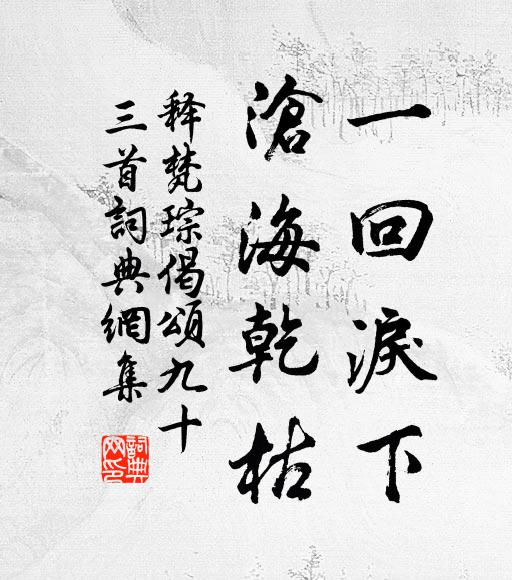 一回淚下
滄海乾枯
释梵琮偈頌九十
三首詞典網集
詞典网印